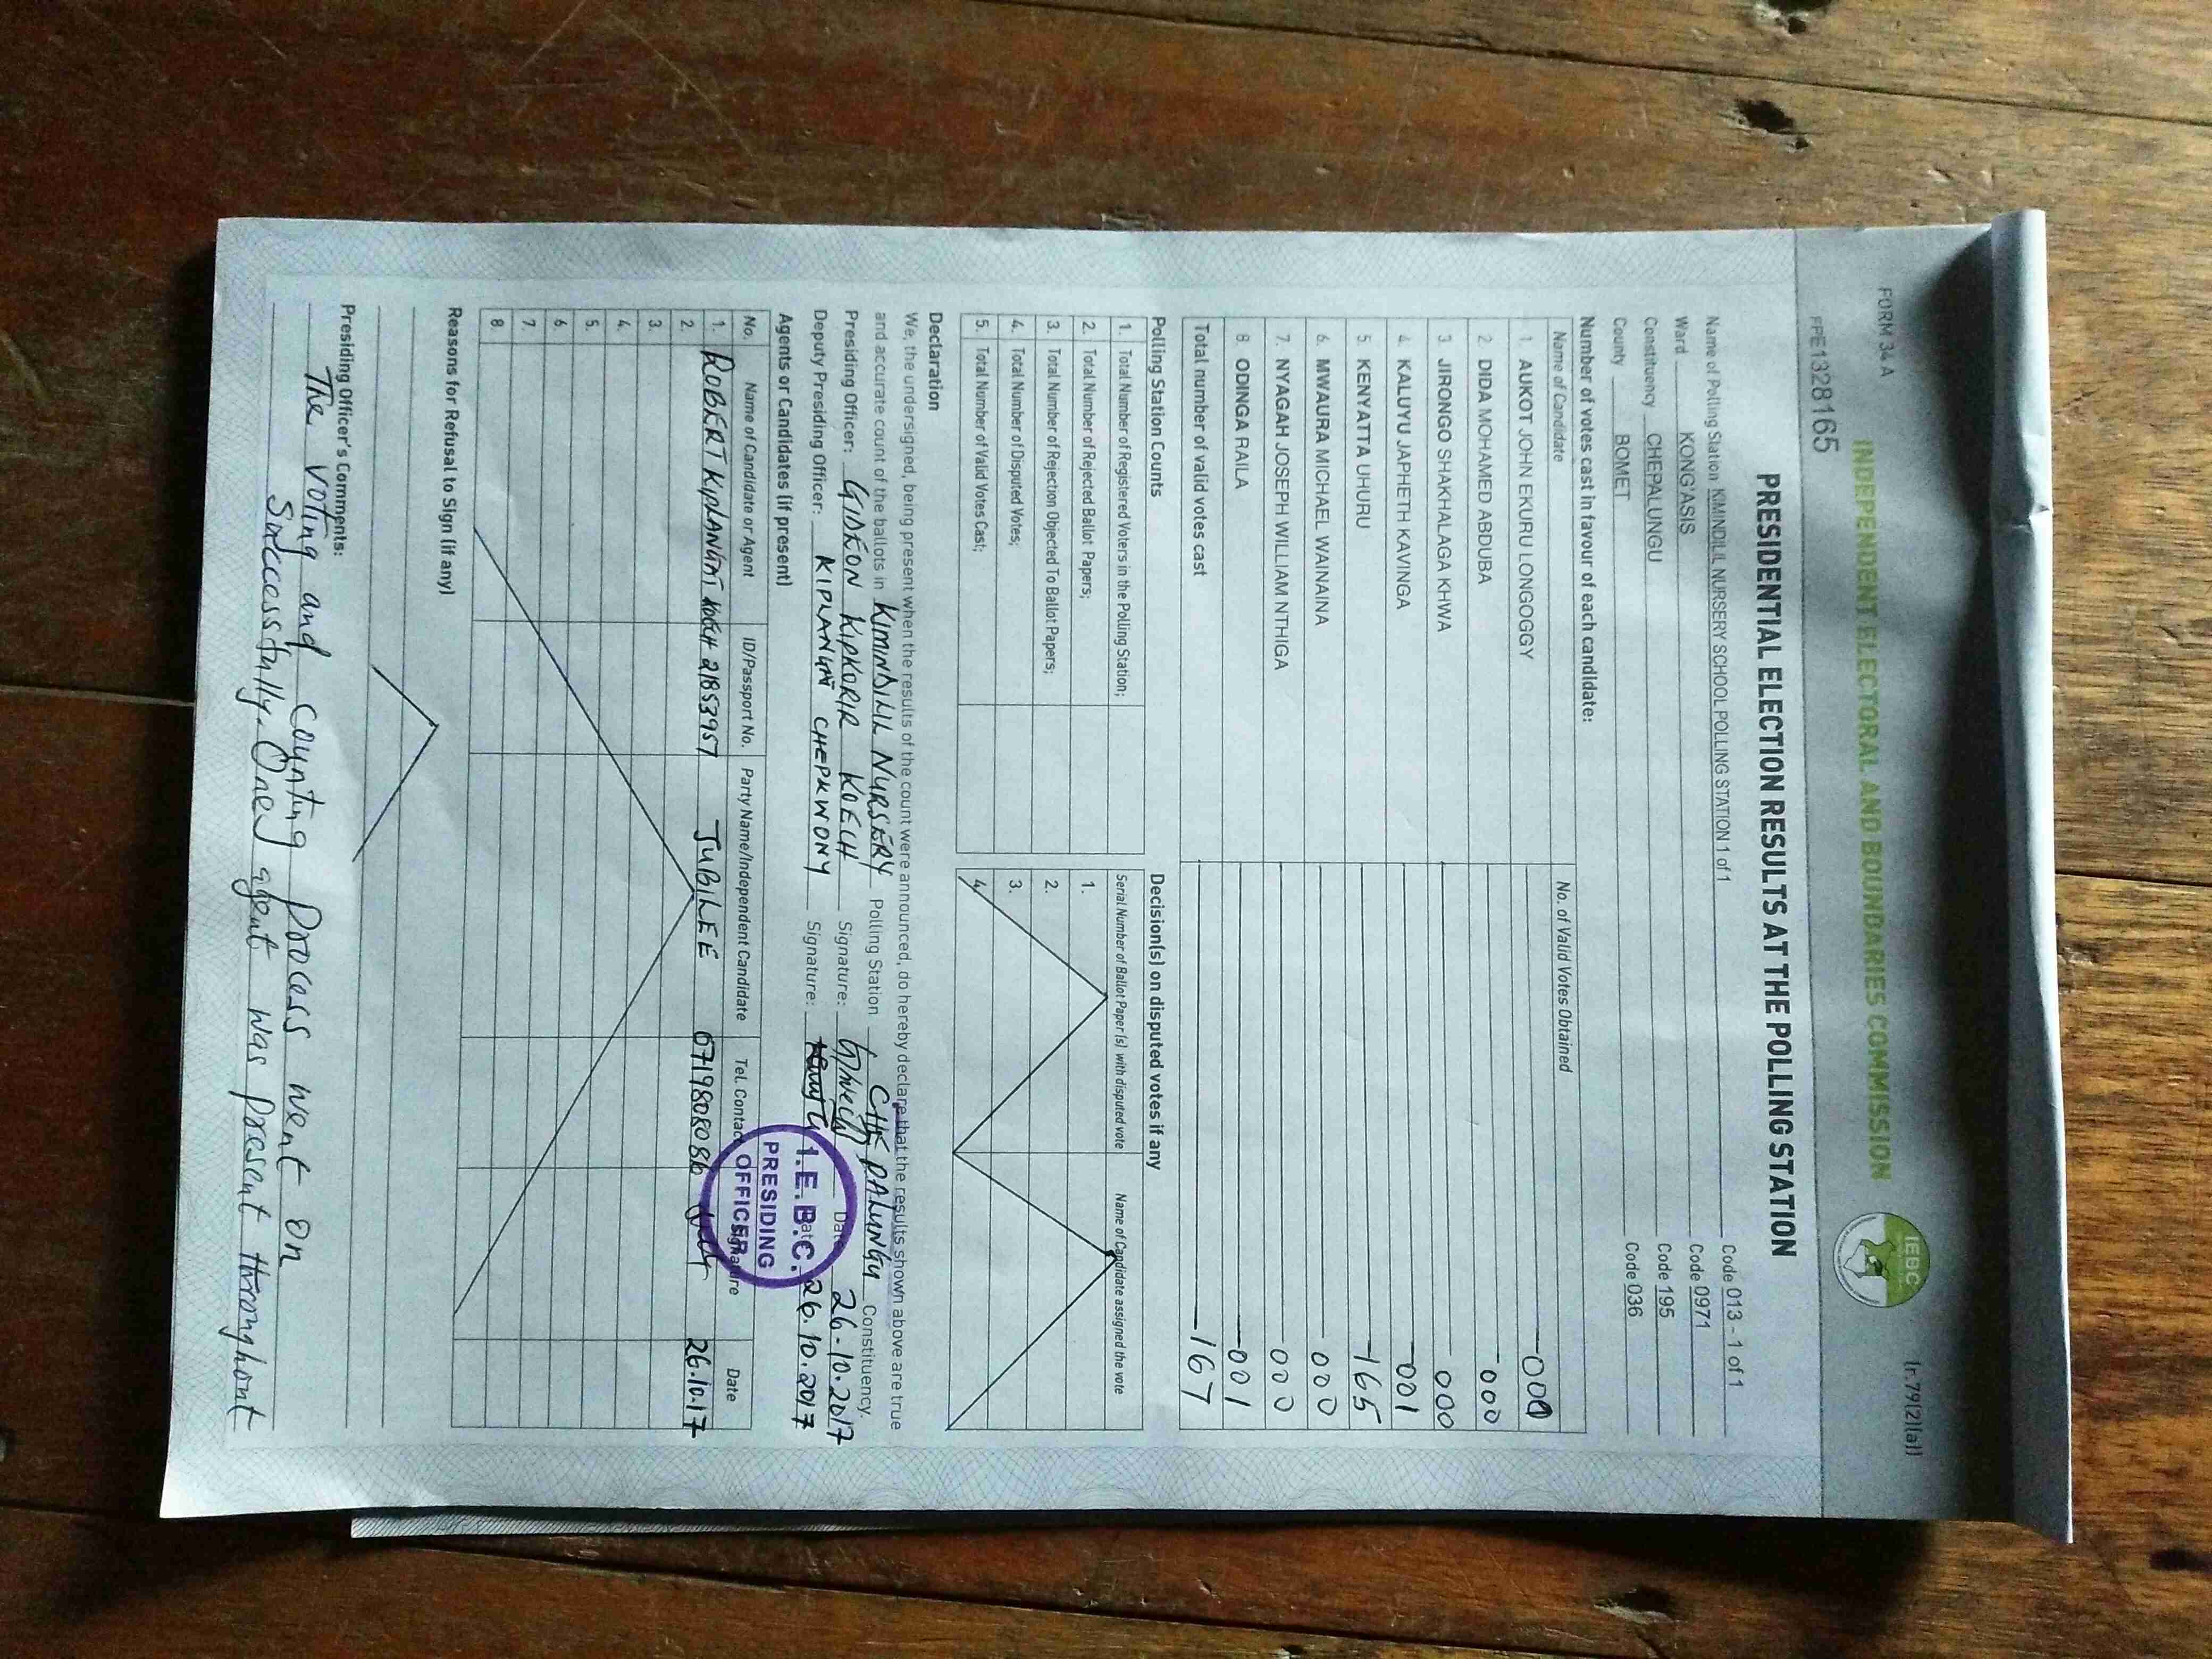 FORM 34 A
(r.79(2)(a))
INDEPENDENT ELECTORAL AND BOUNDARIES COMMISSION
IEBC
PPE1328165
PRESIDENTIAL ELECTION RESULTS AT THE POLLING STATION
Name of Polling Station KIMINDILIL NURSERY SCHOOL POLLING STATION 1 of 1 Code 013 - 1 of 1
Ward KONG'ASIS Code 0971
Constituency CHEPALUNGU Code 195
County BOMET Code 036
Number of votes cast in favour of each candidate:
Name of Candidate No. of Valid Votes Obtained
1. AUKOT JOHN EKURU LONGOGGY 000
2. DIDA MOHAMED ABDUBA 000
3. JIRONGO SHAKHALAGA KHWA 000
4. KALUYU JAPHETH KAVINGA 001
5. KENYATTA UHURU 165
6. MWAURA MICHAEL WAINAINA 000
7. NYAGAH JOSEPH WILLIAM NTHIGA 000
8. ODINGA RAILA 001
Total number of valid votes cast 167
Polling Station Counts
1. Total Number of Registered Voters in the Polling Station;
2. Total Number of Rejected Ballot Papers;
3. Total Number of Rejection Objected To Ballot Papers;
4. Total Number of Disputed Votes;
5. Total Number of Valid Votes Cast;
Decision(s) on disputed votes if any
Serial Number of Ballot Paper(s) with disputed vote Name of Candidate assigned the vote
1.
2.
3.
4.
Declaration
We, the undersigned, being present when the results of the count were announced, do hereby declare that the results shown above are true
and accurate count of the ballots in KIMINDILIL NURSERY Polling Station CHEPALUNGU Constituency.
Presiding Officer: GIDEON KIPKORIR KOECH Signature: Date 26-10-2017
Deputy Presiding Officer: KIPLANGAT CHEPKWONY Signature: Date 26.10.2017
I.E.B.C.
PRESIDING
OFFICER
Agents or Candidates (if present)
No. Name of Candidate or Agent ID/Passport No. Party Name/Independent Candidate Tel. Contact Signature Date
1. ROBERT KIPLANGAT KOECH 21853957 JUBILEE 0719808086 26.10.17
2.
3.
4.
5.
6.
7.
8.
Reasons for Refusal to Sign (if any)
Presiding Officer's Comments:
The voting and counting process went on
Successfully. One agent was present throughout